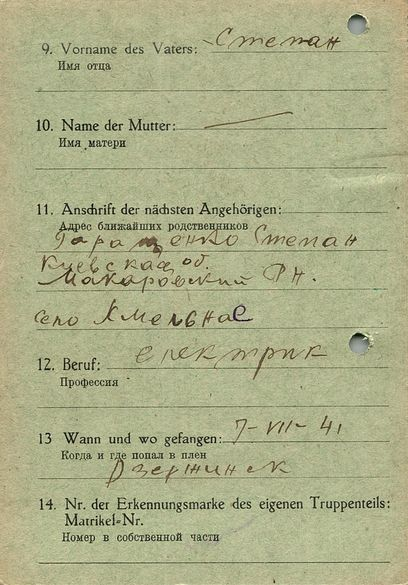 9. Vorname des Vaters: Степан
Имя отца
10. Name der Mutter: —
Имя матери
11. Anschrift der nächsten Angehörigen:
Адрес ближайших родственников
Гаращенко Степан
Киевская об.
Макаровский РН.
село Хмельнае
12. Beruf: електрик
Профессия
13 Wann und wo gefangen: 7-VII-41
Когда и где попал в плен
Дзержинск
14. Nr. der Erkennungsmarke des eigenen Truppenteils:
Matrikel-Nr.
Номер в собственной части